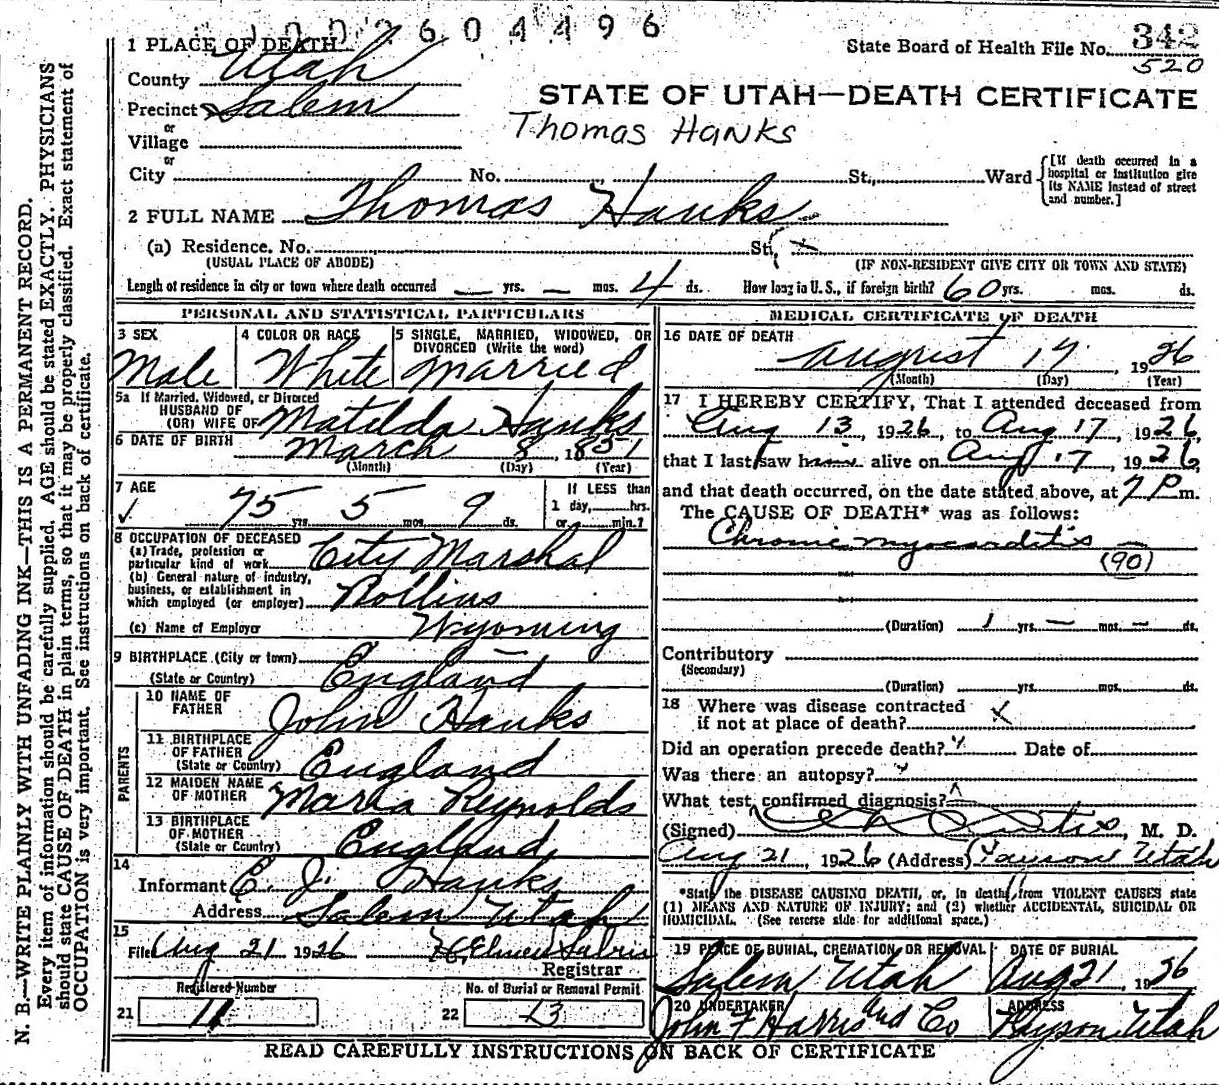 1002604496
State Board of Health File No. 342
520
1 PLACE OF DEATH
County Utah
Precinct Salem
or
Village
or
City No. St., Ward
[If death occurred in a hospital or institution give its NAME instead of street and number.]
STATE OF UTAH—DEATH CERTIFICATE
Thomas Hanks
2 FULL NAME Thomas Hanks
(a) Residence. No. St.
(USUAL PLACE OF ABODE) (IF NON-RESIDENT GIVE CITY OR TOWN AND STATE)
Length of residence in city or town where death occurred — yrs. — mos. 4 ds. How long in U. S., if foreign birth? 60 yrs. mos. ds.
PERSONAL AND STATISTICAL PARTICULARS
3 SEX
Male
4 COLOR OR RACE
White
5 SINGLE, MARRIED, WIDOWED, OR DIVORCED (Write the word)
Married
5a If Married, Widowed, or Divorced
HUSBAND OF
(OR) WIFE OF Matilda Hanks
6 DATE OF BIRTH March 8, 1851
(Month) (Day) (Year)
7 AGE
75 yrs. 5 mos. 9 ds.
If LESS than
1 day, hrs.
or min.?
8 OCCUPATION OF DECEASED
(a) Trade, profession or
particular kind of work City Marshal
(b) General nature of industry,
business, or establishment in
which employed (or employer) Rollins
(c) Name of Employer Wyoming
9 BIRTHPLACE (City or town) —
(State or Country) England
PARENTS
10 NAME OF
FATHER John Hanks
11 BIRTHPLACE
OF FATHER
(State or Country) England
12 MAIDEN NAME
OF MOTHER Maria Reynolds
13 BIRTHPLACE
OF MOTHER
(State or Country) England
14
Informant E. J. Hanks
Address Salem Utah
15
Filed Aug 21 1926 Elmer
Registrar
Registered Number
21 11
No. of Burial or Removal Permit
22 13
MEDICAL CERTIFICATE OF DEATH
16 DATE OF DEATH
August 17, 1926
(Month) (Day) (Year)
17 I HEREBY CERTIFY, That I attended deceased from
Aug 13, 1926, to Aug 17, 1926,
that I last saw him alive on Aug 17, 1926,
and that death occurred, on the date stated above, at 7 P m.
The CAUSE OF DEATH* was as follows:
Chronic myocarditis —
(90)
(Duration) 1 yrs. — mos. — ds.
Contributory
(Secondary)
(Duration) yrs. mos. ds.
18 Where was disease contracted
if not at place of death?
Did an operation precede death? Date of
Was there an autopsy?
What test confirmed diagnosis?
(Signed) Curtis, M. D.
Aug 21, 1926 (Address) Payson Utah
*State the DISEASE CAUSING DEATH, or, in deaths from VIOLENT CAUSES state
(1) MEANS AND NATURE OF INJURY; and (2) whether ACCIDENTAL, SUICIDAL OR
HOMICIDAL. (See reverse side for additional space.)
19 PLACE OF BURIAL, CREMATION OR REMOVAL
Salem Utah
DATE OF BURIAL
Aug 21, 1926
20 UNDERTAKER
John F Harris and Co
ADDRESS
Payson Utah
READ CAREFULLY INSTRUCTIONS ON BACK OF CERTIFICATE
N. B.—WRITE PLAINLY WITH UNFADING INK—THIS IS A PERMANENT RECORD.
Every item of information should be carefully supplied. AGE should be stated EXACTLY. PHYSICIANS
should state CAUSE OF DEATH in plain terms, so that it may be properly classified. Exact statement of
OCCUPATION is very important. See instructions on back of certificate.